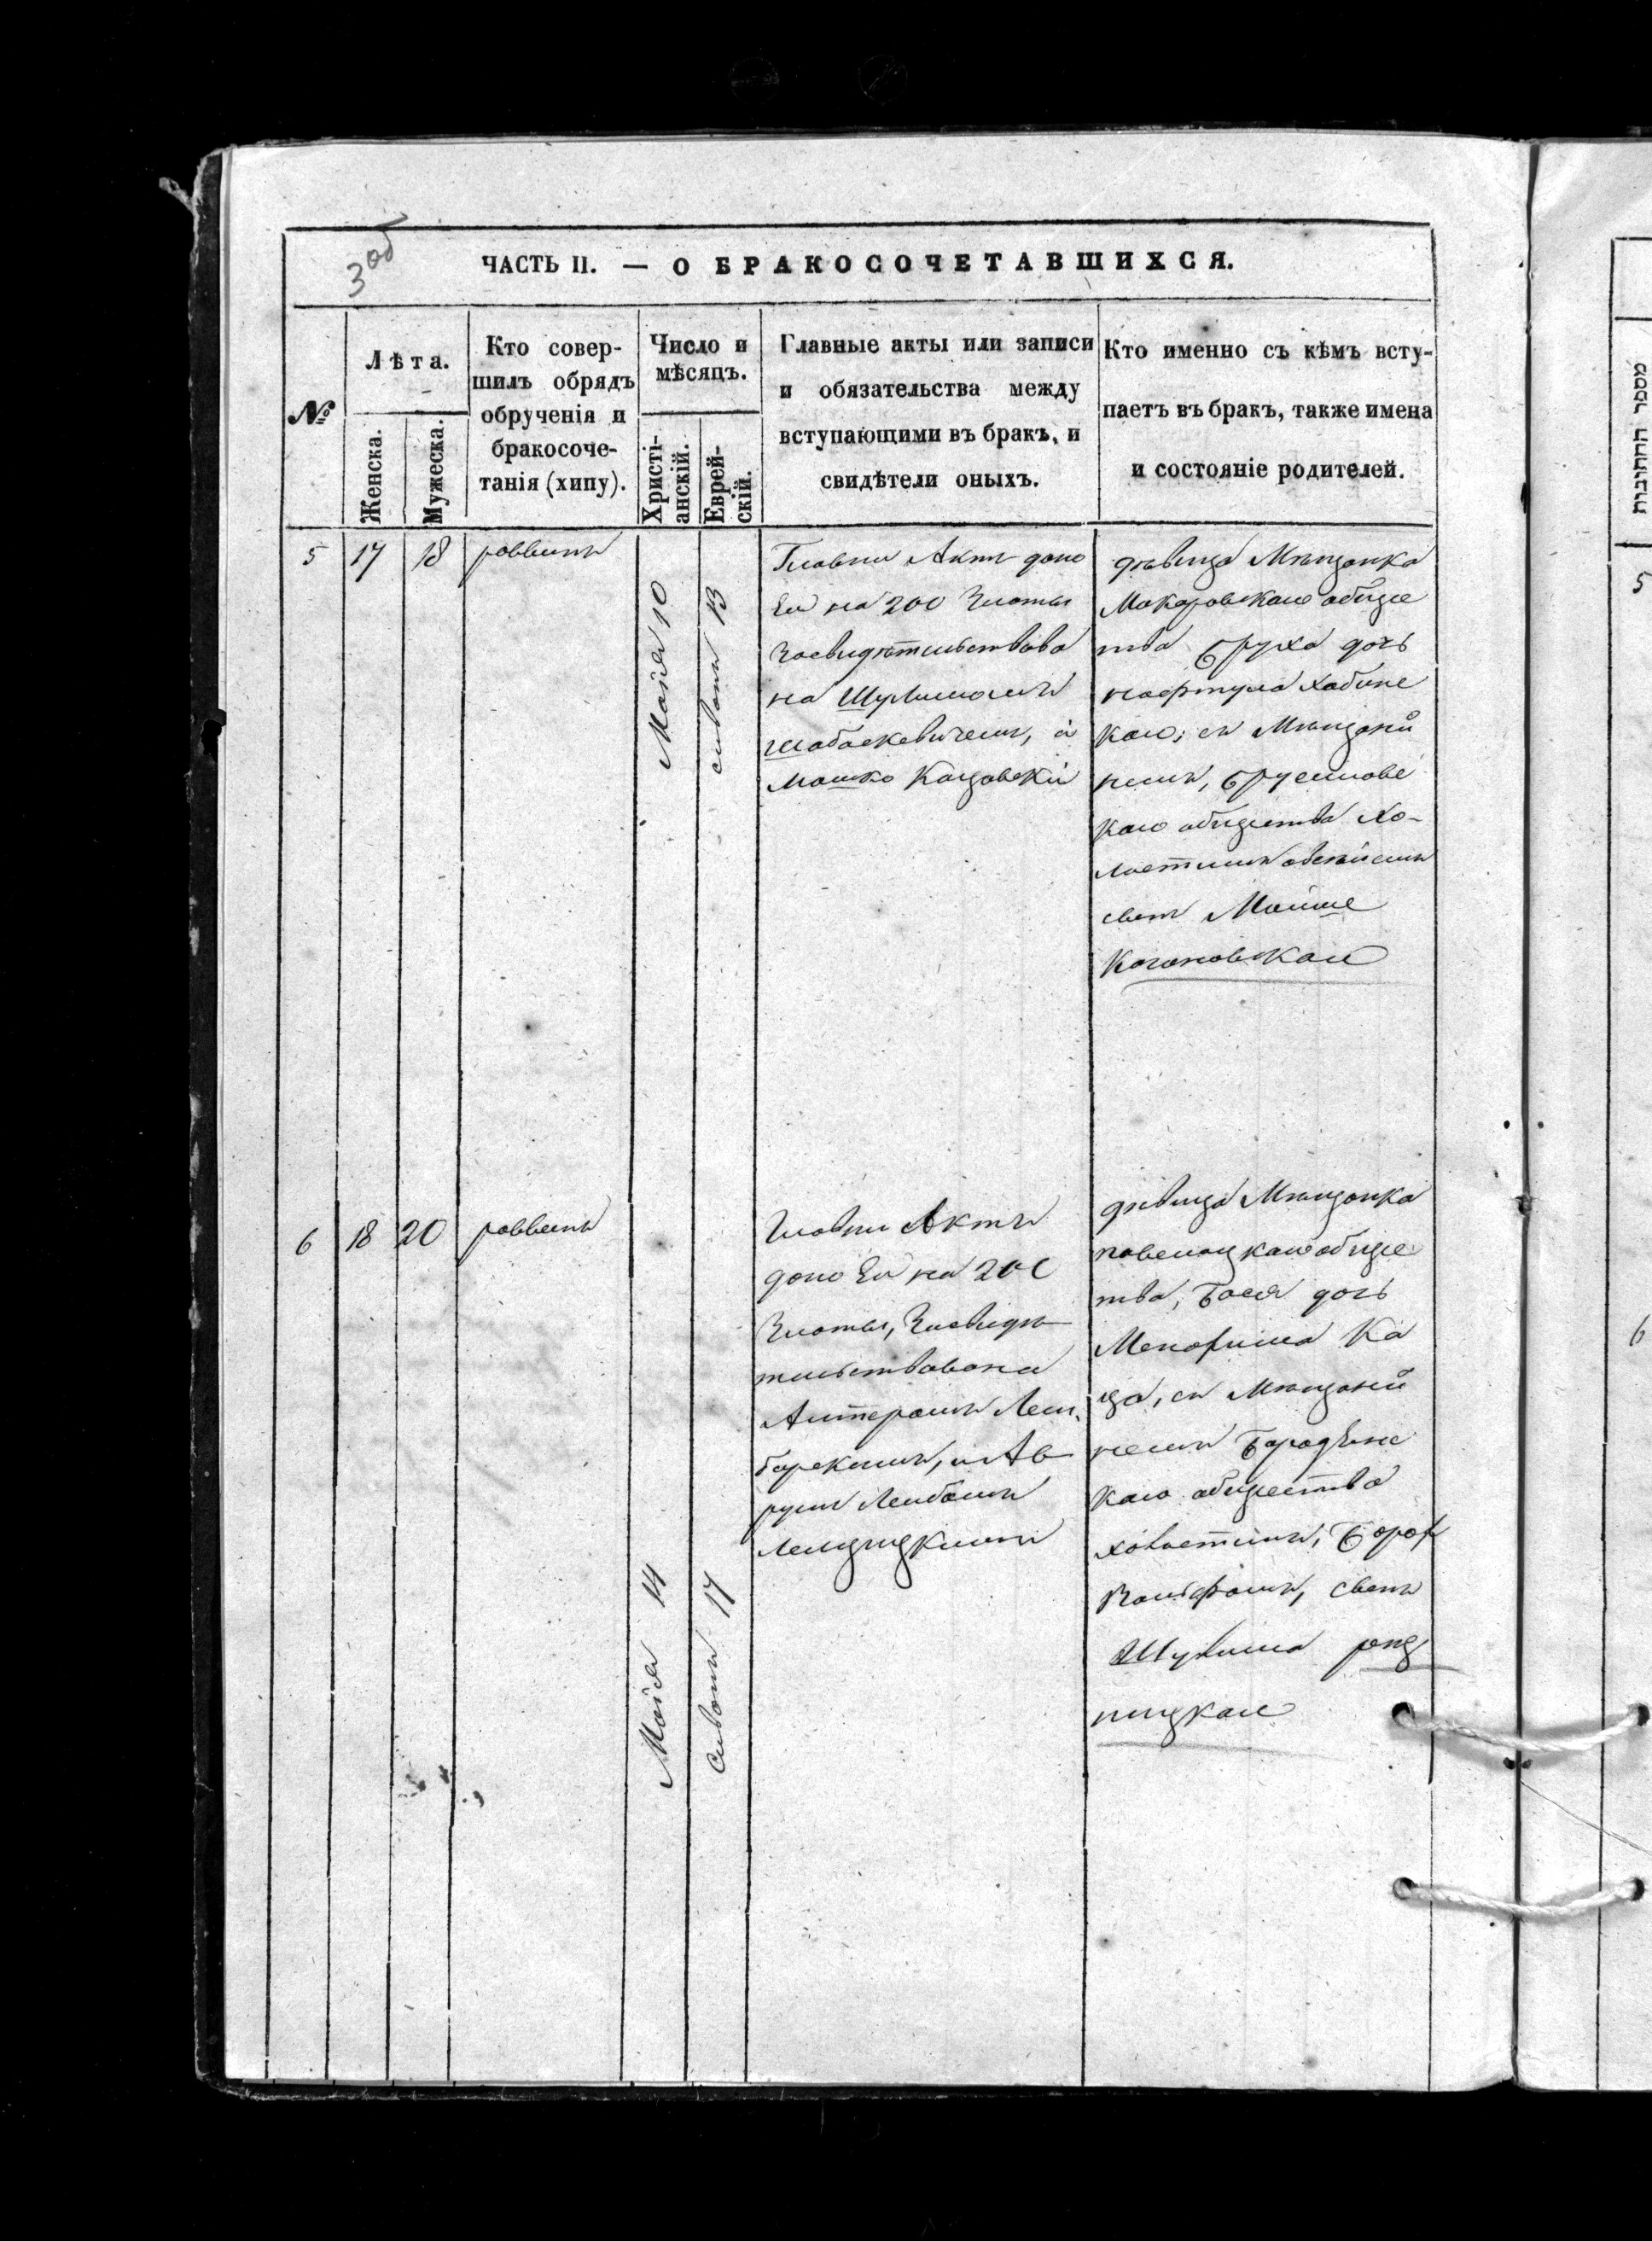 3 об
ЧАСТЬ II. — О БРАКОСОЧЕТАВШИХСЯ.
№
Лѣта.
Женска.
Мужеска.
Кто совер-
шилъ обрядъ
обрученія и
бракосоче-
танія (хипу).
Число и
мѣсяцъ.
Христі-
анскій.
Еврей-
скій.
Главные акты или записи
и обязательства между
вступающими въ бракъ, и
свидѣтели оныхъ.
Кто именно съ кѣмъ всту-
паетъ въ бракъ, также имена
и состояніе родителей.
5
17
18
раввинъ
Маія 10
сивонъ 13
Главни Актъ дано
Ей на 200 Злоты
Засвидѣтельствова
на Шулимомъ
шабаскевичемъ, и
Мошко Кацовскій
дѣвица Мѣщанка
Макаровскаго обще
тва Бруха дочь
нафтула Хабине
каго; съ Мѣщани
номъ, Брусилове
каго общества Хо-
лостимъ
свет Мойше
Кагановскаго
6
18
20
раввинъ
Маія 14
Сивонъ 17
Главни Актъ
дано Ей на 200
Злоты, Засвидѣ
тельствована
Алтеромъ Лем
берскимъ, и Ав
румъ Лейбомъ
дѣвица Мѣщанка
паволоцкаго обще
тва, Бася дочь
Менахима Ка
ца, съ Мѣщани
номъ Бородянс
каго общества
холостимъ, Борох
Вольфомъ, свенъ
Шулима
ницкаго
מספר החתונות
5
6